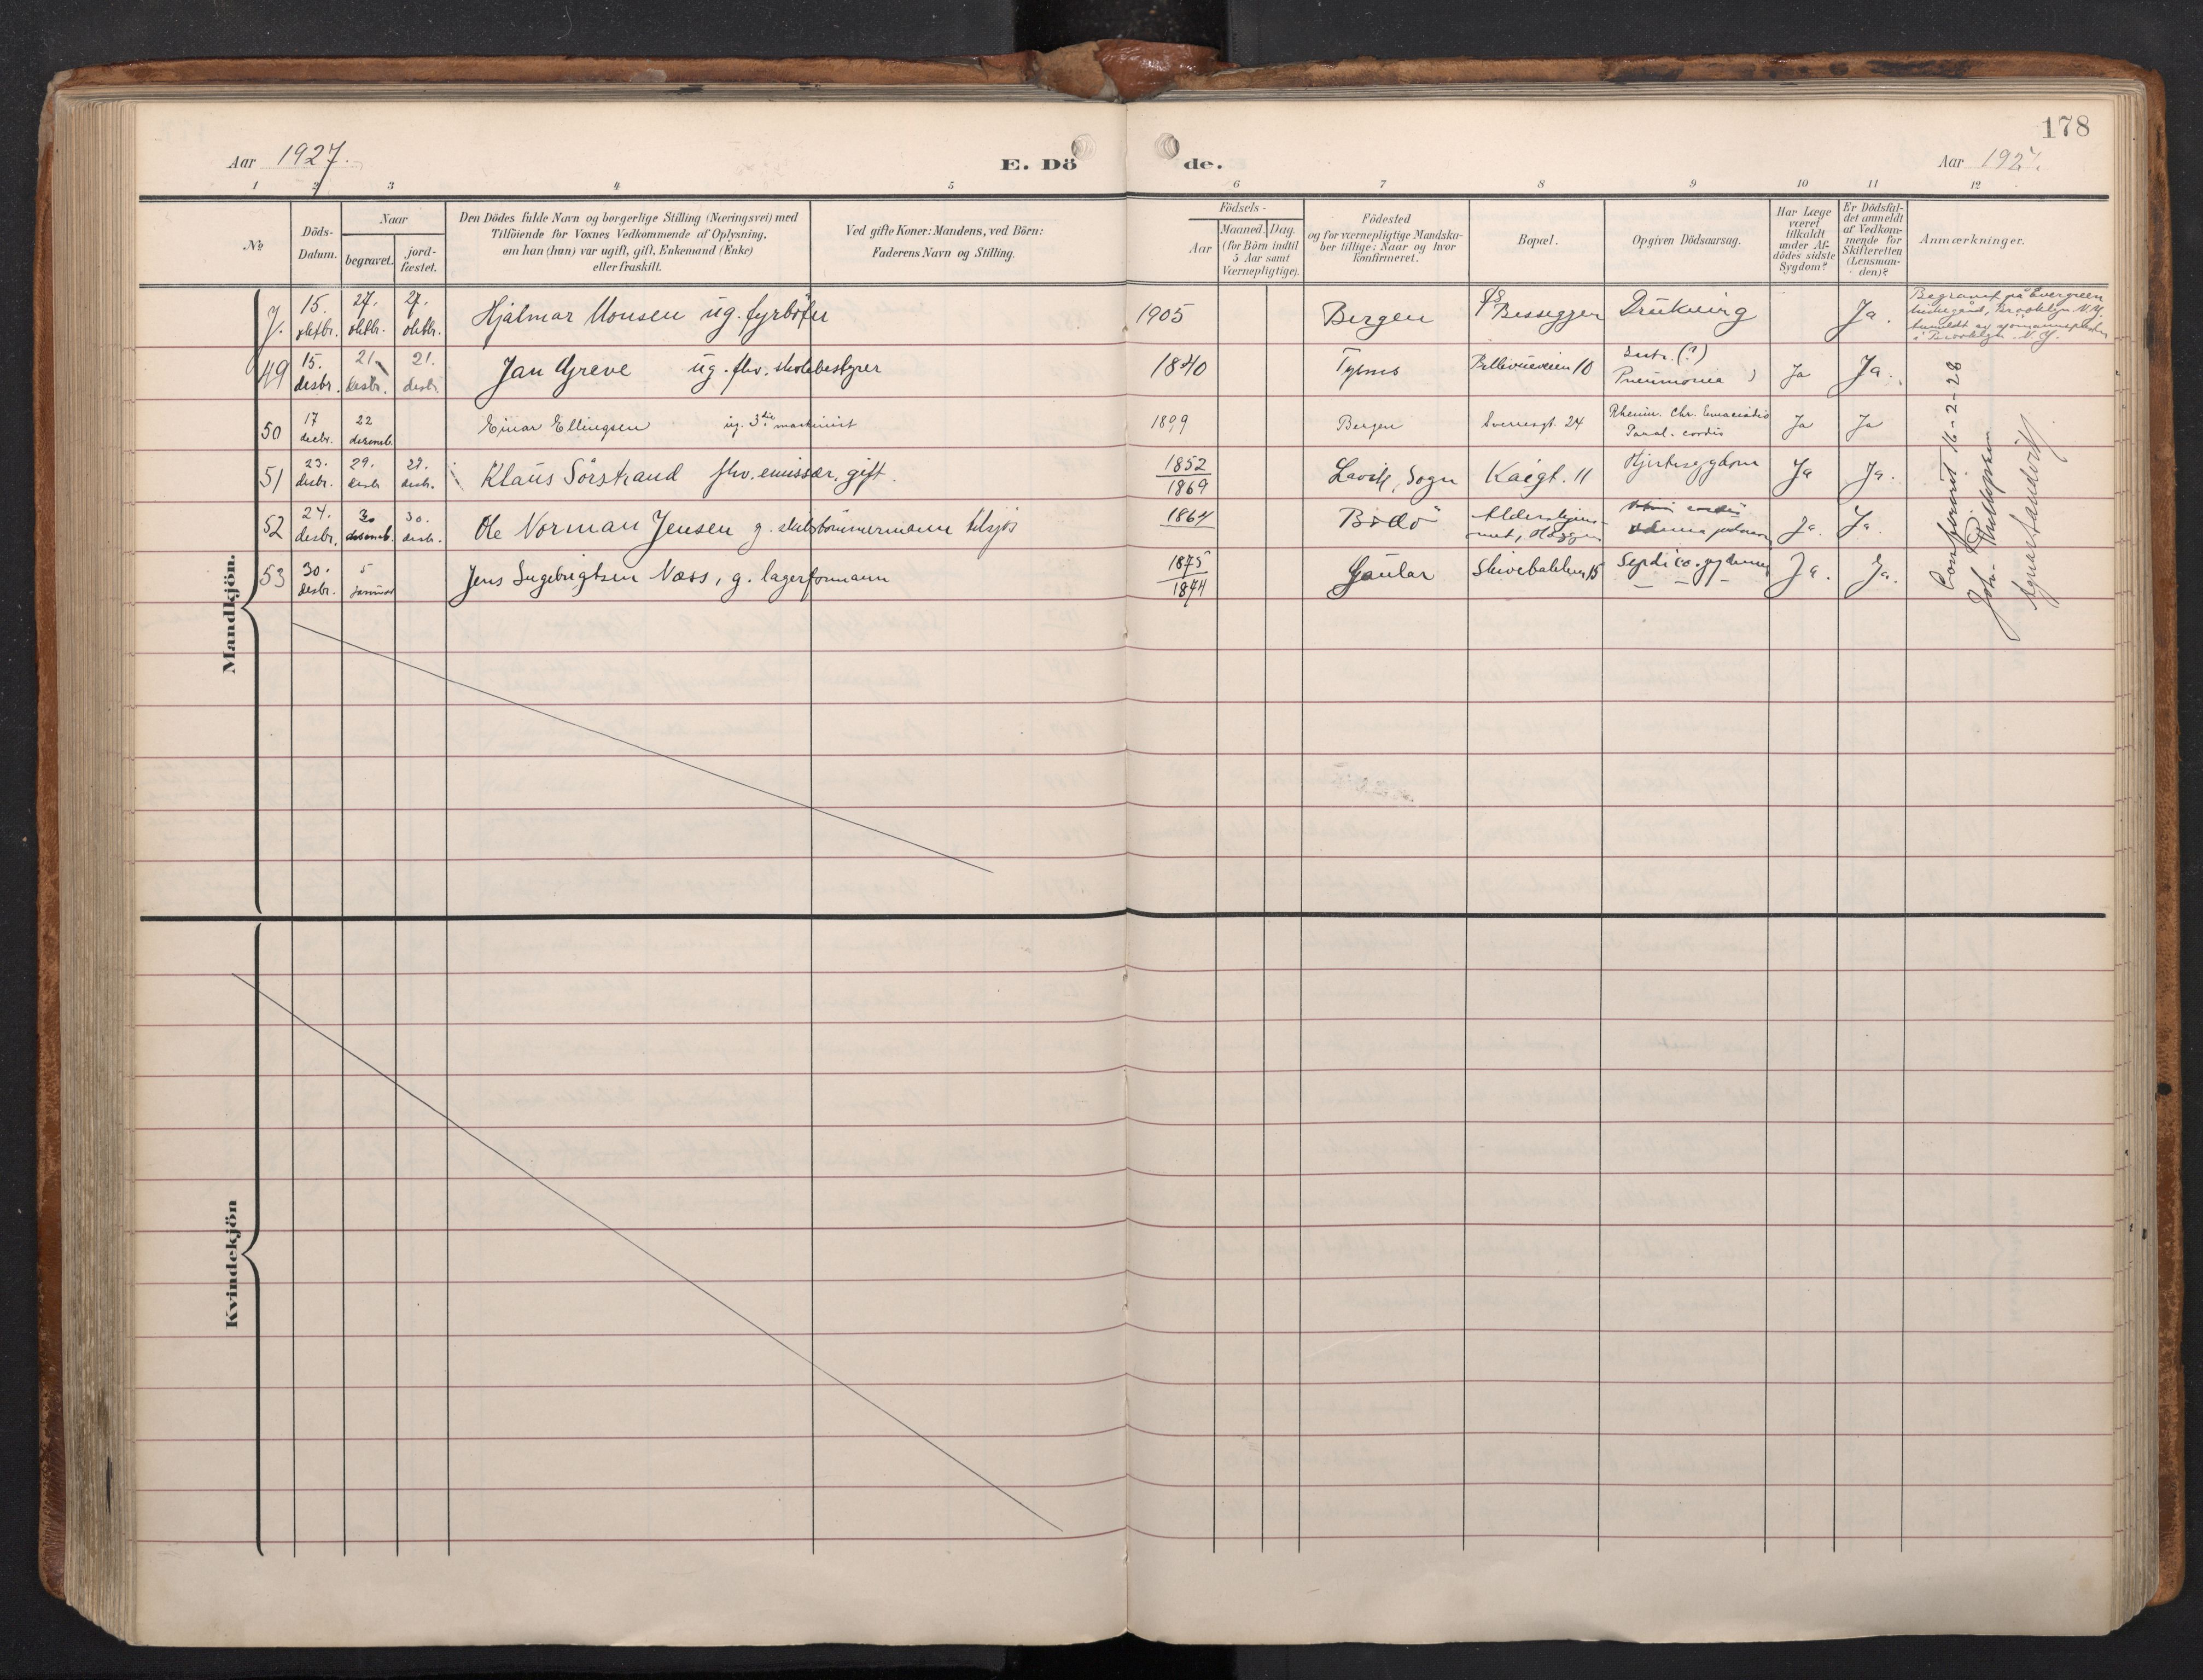 178
Aar 1927.
E. Dö de.
Aar 1927.
1 2 3 4 5 6 7 8 9 10 11 12
No
Döds-
Datum.
Naar
begravet.
jord-
fæstet.
Den Dödes fulde Navn og borgerlige Stilling (Næringsvei) med
Tilföiende for Voxnes Vedkommende af Oplysning,
om han (hun) var ugift, gift, Enkemand (Enke)
eller fraskilt.
Ved gifte Koner: Mandens, ved Börn:
Faderens Navn og Stilling.
Födsels-
Aar
Maaned.
Dag.
(for Börn indtil
5 Aar samt
Værnepligtige).
Födested
og for værnepligtige Mandska-
ber tillige: Naar og hvor
konfirmeret.
Bopæl.
Opgiven Dödsaarsag.
Har Læge
været
tilkaldt
under Af-
dödes sidste
Sygdom?
Er Dödsfal-
det anmeldt
af Vedkom-
mende for
Skifteretten
(Lensman-
den)?
Anmærkninger.
Mandkjön.
J. 15. oktbr. 27. oktbr. 27. oktbr. Hjalmar Monsen ug. fyrböter 1905 Bergen Bessegger Drukning Ja.
Begravet på Evergreen
kirkegård, Brooklyn N.Y.
i Brooklyn. N.Y.
49 15. desbr. 21. desbr. 21. desbr. Jan Greve ug. fhv. skolebestyrer 1840 Tysnes Bellevueveien 10 (?) Pneumonia Ja Ja.
50 17 decbr. 22 decemb. Einar Ellingsen ug. 3die maskinist 1899 Bergen Sverresgt. 24 Rheum. chr. Emaciatio Paral. cordis Ja Ja
51 23. desbr. 29. desbr. 29. desbr. Klaus Sörstrand fhv. emissær, gift. 1852 1869 Lavik, Sogn Kaigt. 11 Hjertesygdom Ja Ja.
52 24. desbr. 30 decemb. 30. desbr. Ole Norman Jensen g. skibstömmermann tilsjös 1864 Bodö Ja. Ja.
53 30. desbr. 5 januar Jens Ingebrigtsen Næss, g. lagerformann 1875 1874 Gaular Skivebakken 15 Ja. Ja.
Conferered 16-2-28
Agnar Sandvik
Kvindekjön